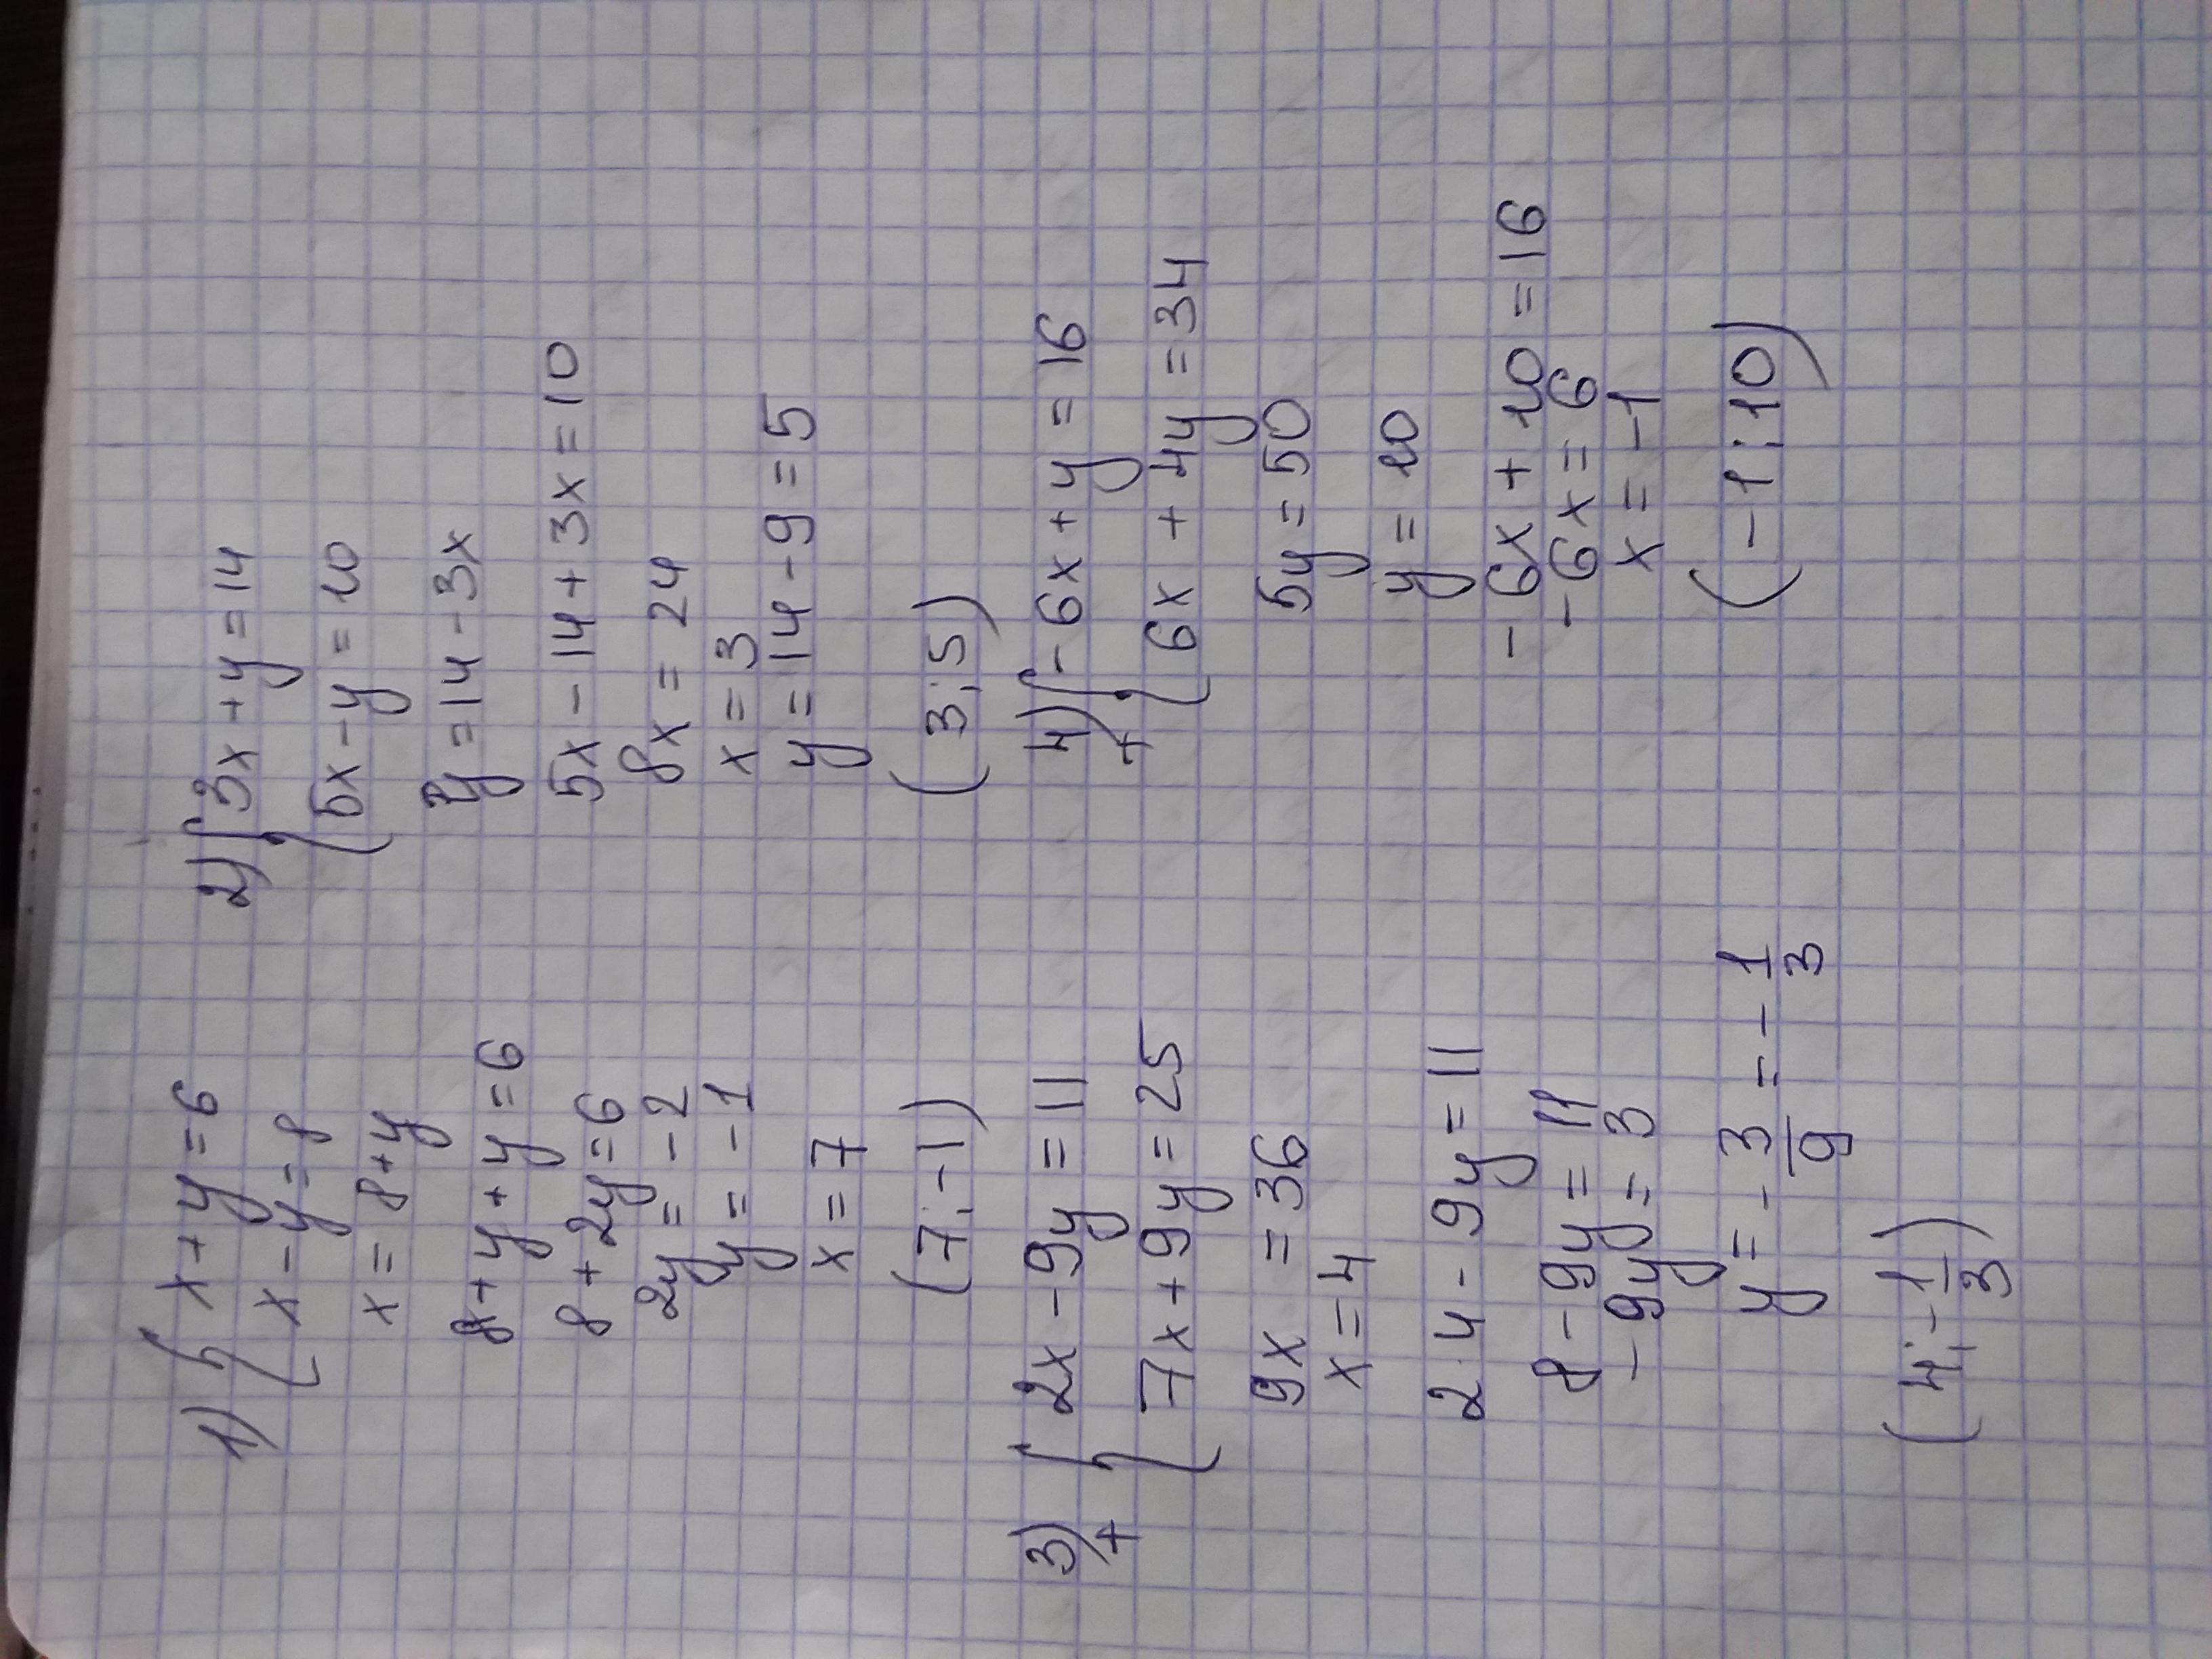 1) { x + y = 6
x - y = 8
x = 8 + y
8 + y + y = 6
8 + 2y = 6
2y = -2
y = -1
x = 7
(7; -1)
2) { 3x + y = 14
5x - y = 10
y = 14 - 3x
5x - 14 + 3x = 10
8x = 24
x = 3
y = 14 - 9 = 5
(3; 5)
3) + { 2x - 9y = 11
7x + 9y = 25
9x = 36
x = 4
2 · 4 - 9y = 11
8 - 9y = 11
-9y = 3
y = -3/9 = -1/3
(4; -1/3)
4) + { -6x + y = 16
6x + 4y = 34
5y = 50
y = 10
-6x + 10 = 16
-6x = 6
x = -1
(-1; 10)